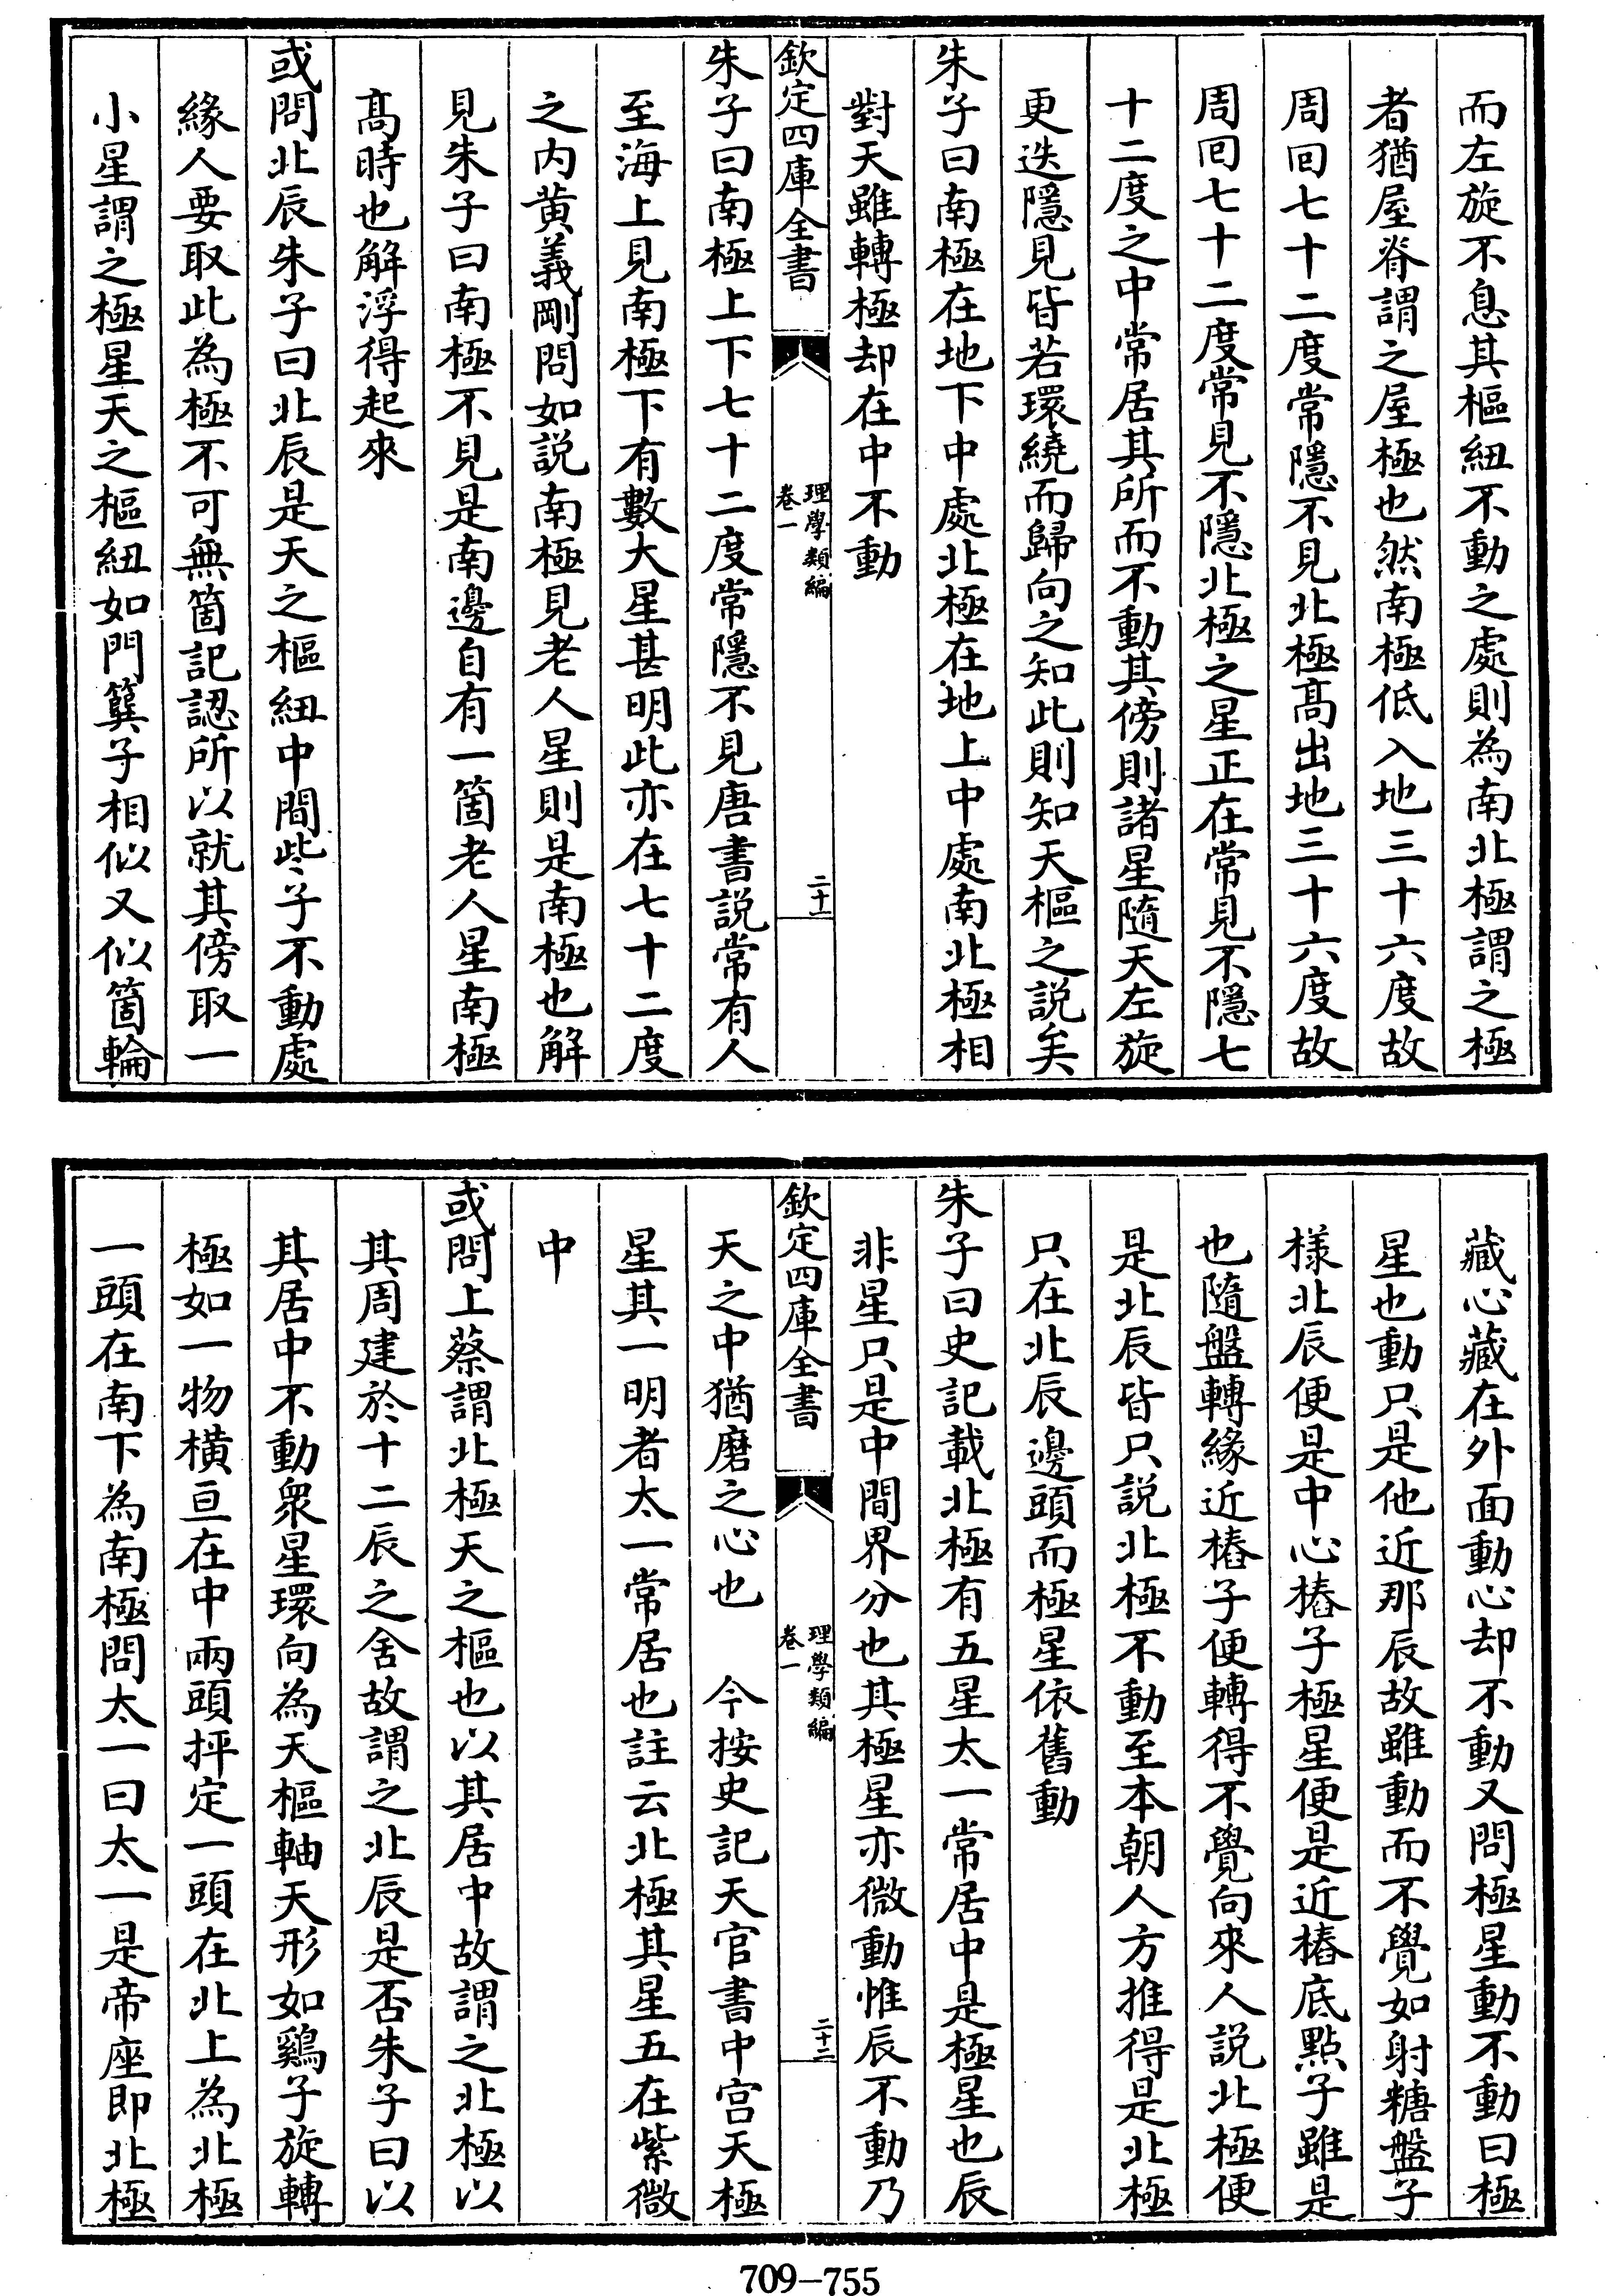 而左旋不息其樞紐不動之處則為南北極謂之極
者猶屋脊謂之屋極也然南極低入地三十六度故
周回七十二度常隱不見北極髙出地三十六度故
周回七十二度常見不隱北極之星正在常見不隱七
十二度之中常居其所而不動其傍則諸星隨天左旋
更迭隱見皆若環繞而歸向之知此則知天樞之說矣
朱子曰南極在地下中處北極在地上中處南北極相
對天雖轉極却在中不動
欽定四庫全書
理學類編
卷一
二十一
朱子曰南極上下七十二度常隱不見唐書說常有人
至海上見南極下有數大星甚明此亦在七十二度
之内黄義剛問如説南極見老人星則是南極也解
見朱子曰南極不見是南邊自有一箇老人星南極
髙時也解浮得起來
或問北辰朱子曰北辰是天之樞紐中間些子不動處
緣人要取此為極不可無箇記認所以就其傍取一
小星謂之極星天之樞紐如門簨子相似又似箇輪
藏心藏在外面動心却不動又問極星動不動曰極
星也動只是他近那辰故雖動而不覺如射糖盤子
樣北辰便是中心樁子極星便是近樁底點子雖是
也隨盤轉緣近樁子便轉得不覺向來人説北極便
是北辰皆只説北極不動至本朝人方推得是北極
只在北辰邊頭而極星依舊動
朱子曰史記載北極有五星太一常居中是極星也辰
非星只是中間界分也其極星亦微動惟辰不動乃
欽定四庫全書
理學類編
卷一
二十二
天之中猶磨之心也　今按史記天官書中宫天極
星其一明者太一常居也註云北極其星五在紫微
中
或問上蔡謂北極天之樞也以其居中故謂之北極以
其周建於十二辰之舍故謂之北辰是否朱子曰以
其居中不動衆星環向為天樞軸天形如鷄子旋轉
極如一物橫亘在中兩頭抨定一頭在北上為北極
一頭在南下為南極問太一曰太一是帝座即北極
709-755